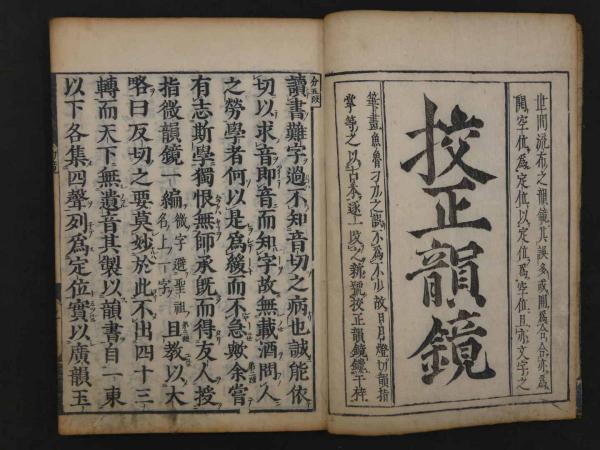 世間流布之韻鏡其誤多或開為合合亦為
開空位為定位以定位為空位且亦文字之
挍正韻鏡
筆畫魚魯刁刀之誤不為不少故日月燈切韻指
掌等之以古本逐一改之新號挍正韻鏡鏤于梓
分五段
讀書難字過不知音切之病也誠能依
切以求音即音而知字故無載酒問人
之勞學者何以是為緩而不急歟余嘗
有志斯學獨恨無師承既而得友人授
指微韻鏡一編微字避聖祖名上一字且教以大
略曰反切之要莫妙於此不出四十三
轉而天下無遺音其製以韻書自一東
以下各集四聲列為定位實以廣韻玉